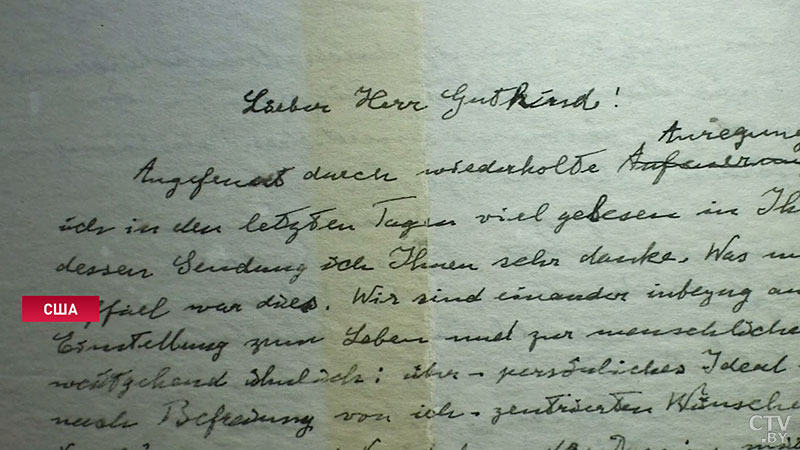 Lieber Herr Gutkind!
Anregung
Angefeuert durch wiederholte
ich in den letzten Tagen viel gelesen in Ih
dessen Sendung ich Ihnen sehr danke. Was m
auffiel war dies. Wir sind einander inbezug au
Einstellung zum Leben und zur menschliche
weitgehend ähnlich: über-persönliches Ideal
nach Befreiung von ich-zentrierten Wünsche
США
CTV
.BY